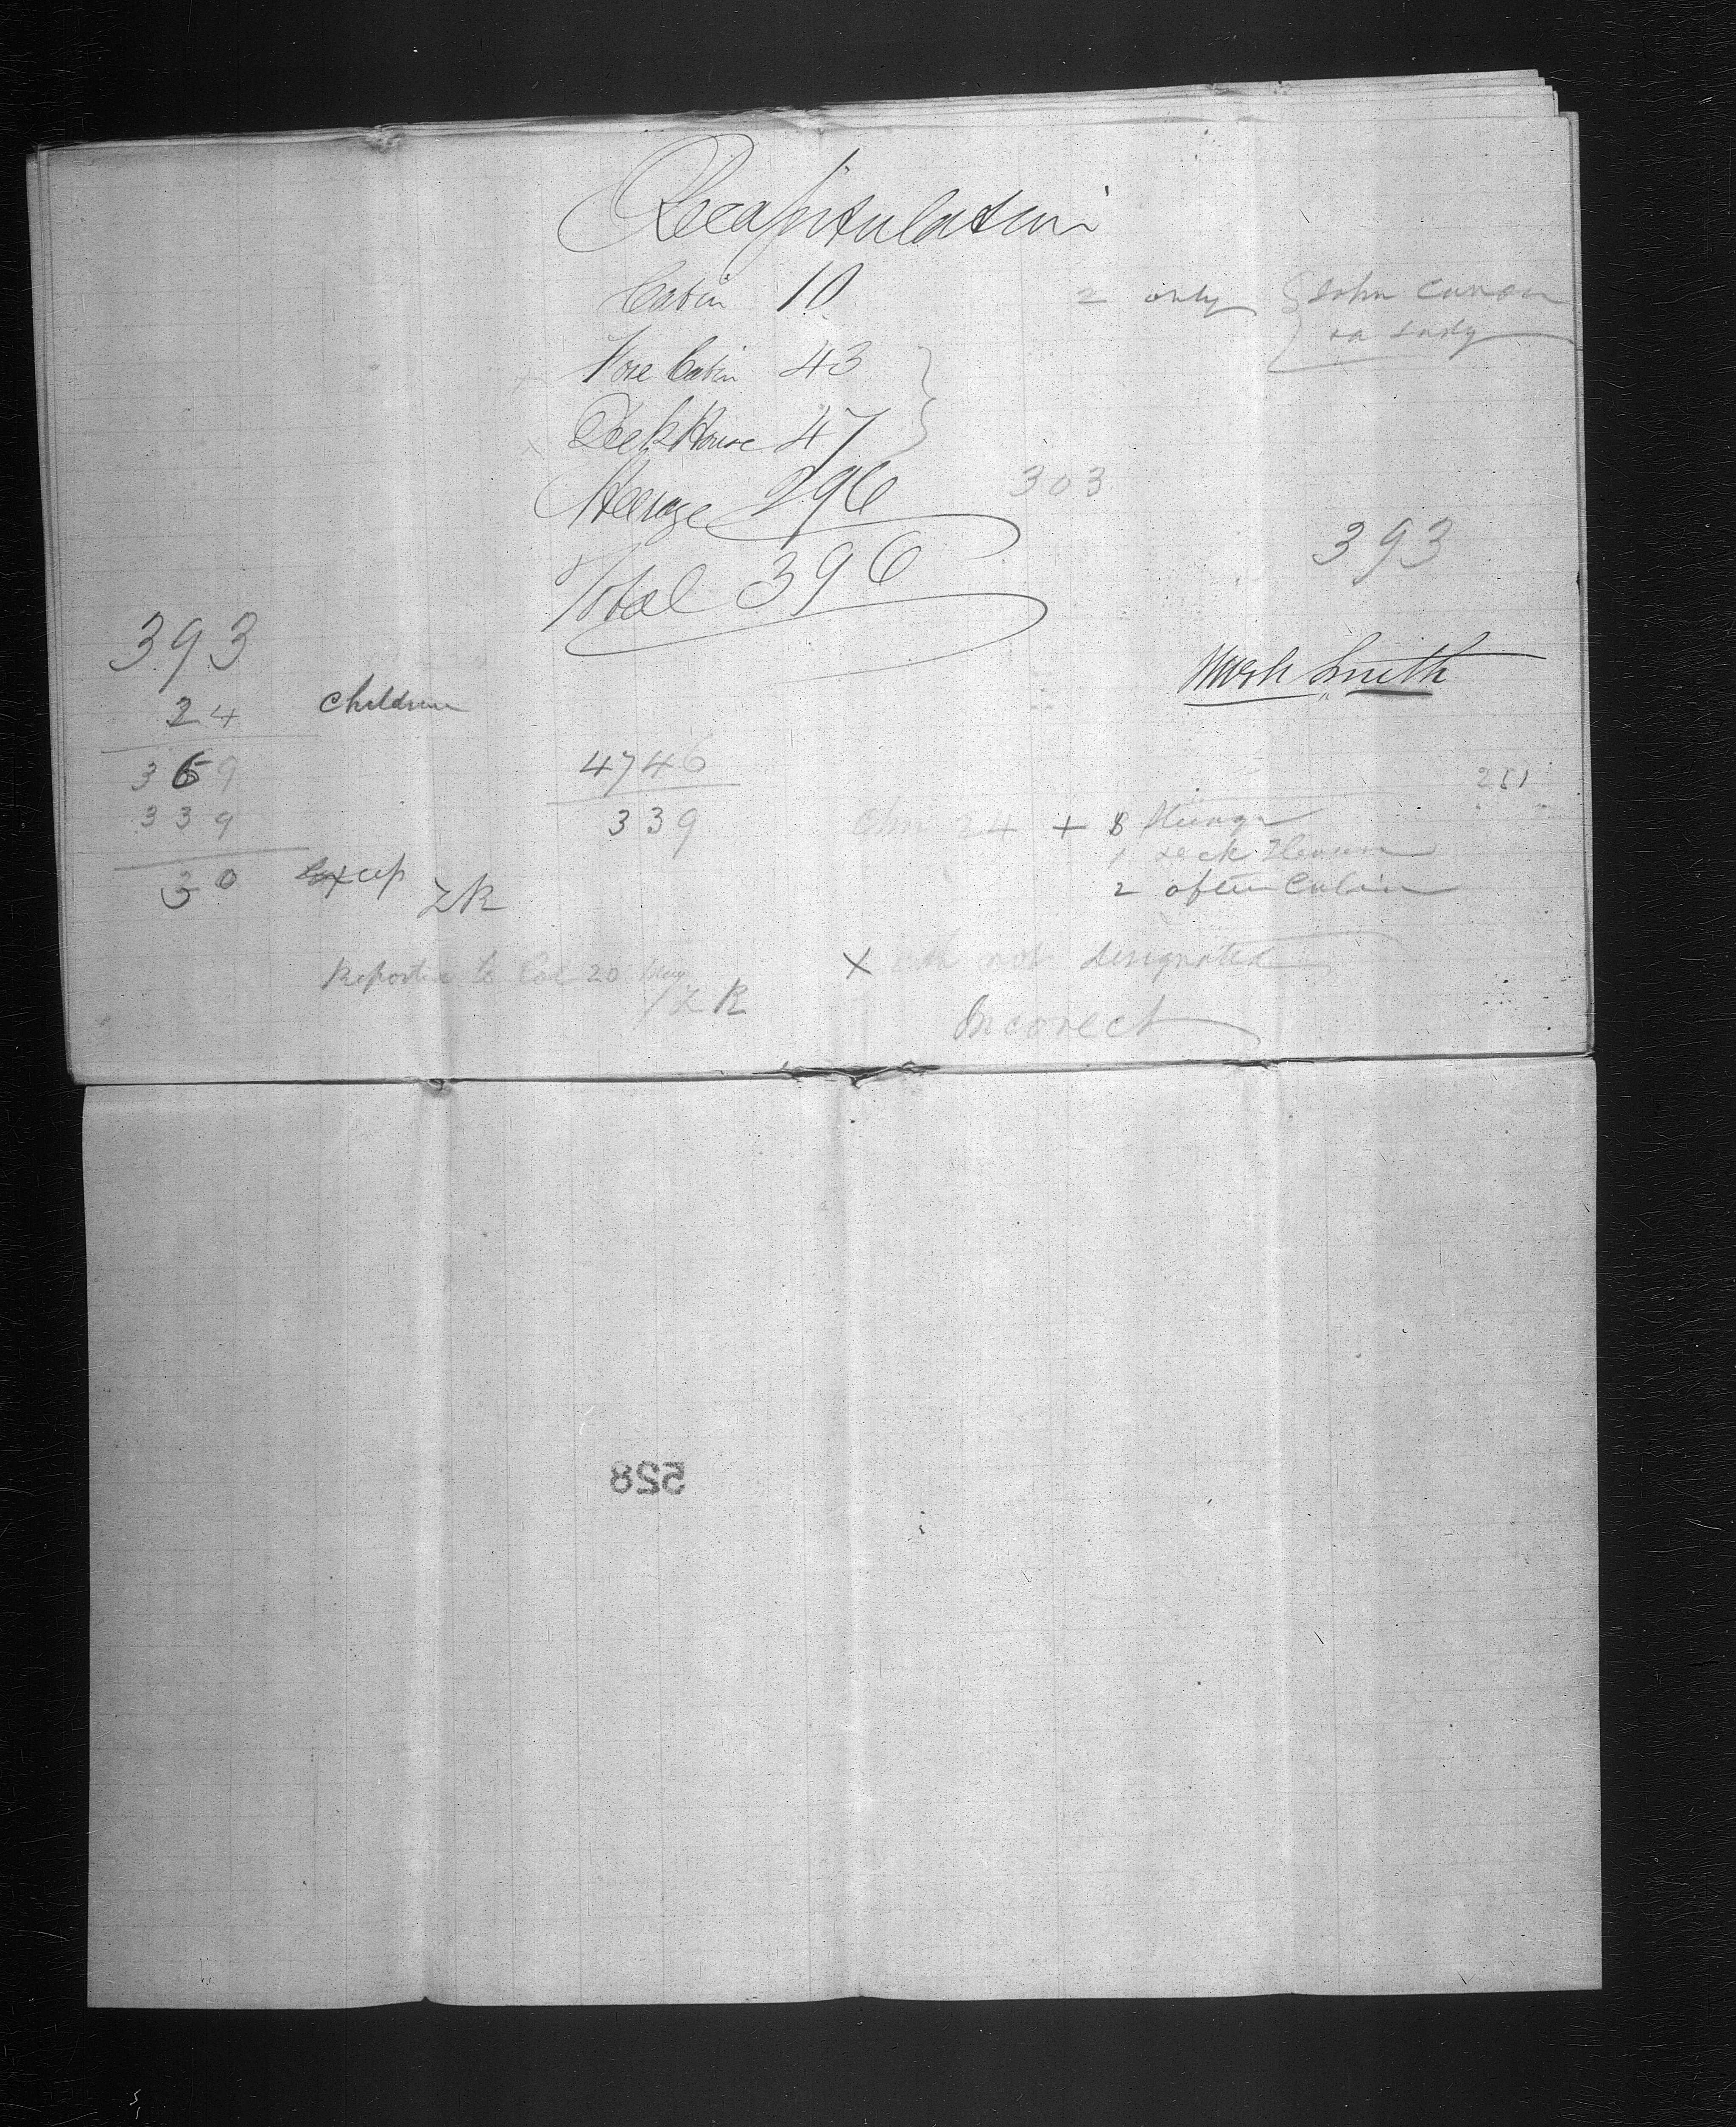 Recapitulation
Cabin 10
2 only
John Curran
Fore Cabin 43
Deck House 47
Steerage 296
303
Total 396
393
393
24 Children
369
339
30 Excep
ZR
4746
339
Smith
251
Chn 24 + 8 Steerage
1 deck House
2 after Cabin
Reported to Col 20 May
ZR
X not designated
Incorrect
528